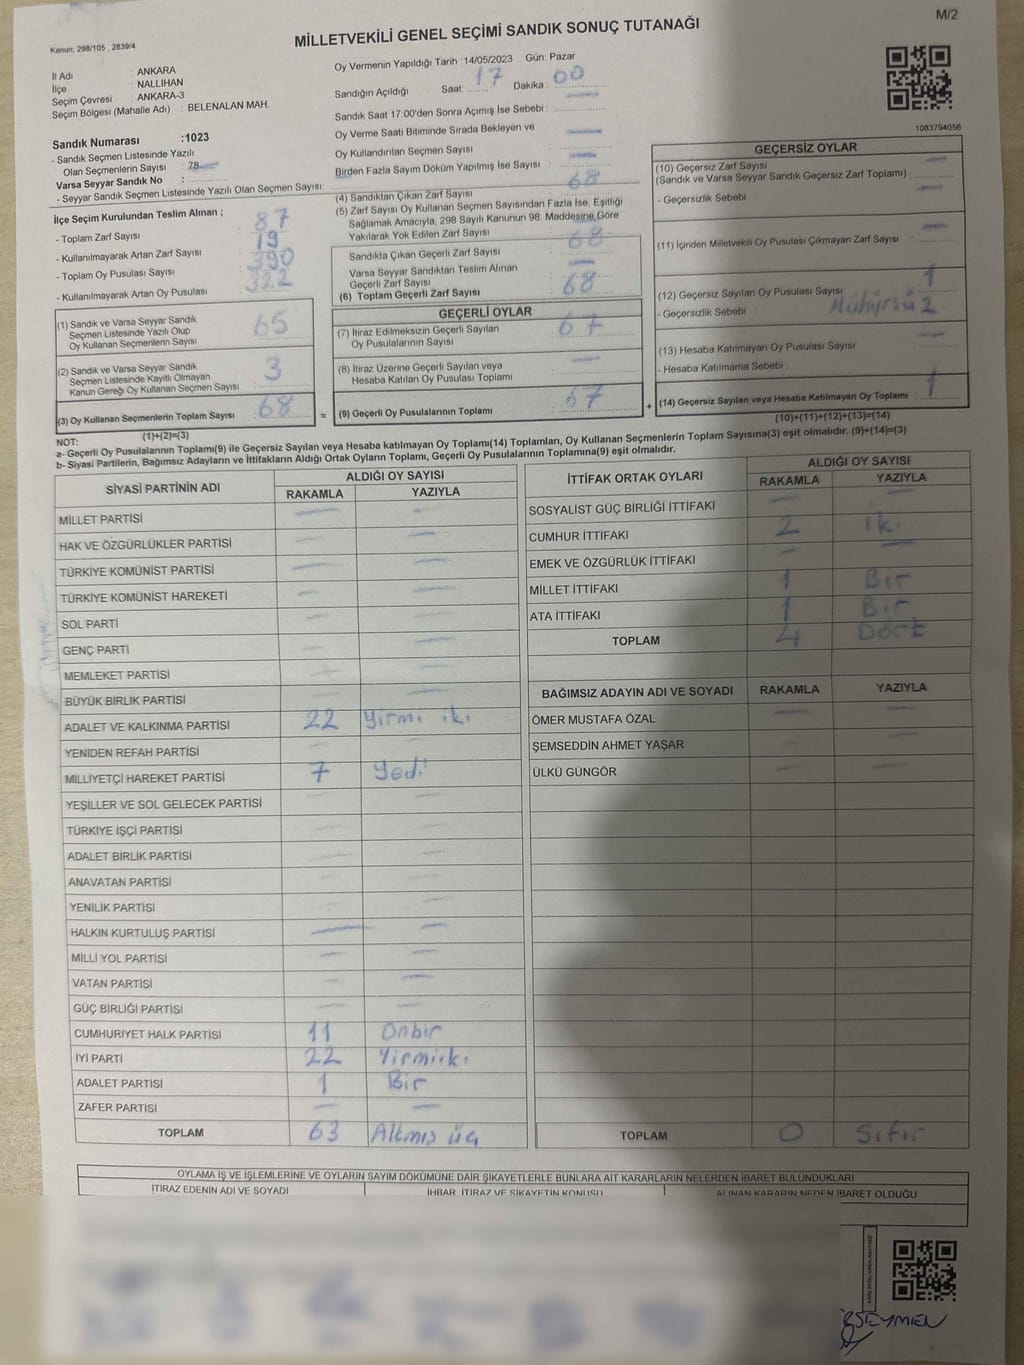 M/2
Kanun; 298/105 , 2839/4
MİLLETVEKİLİ GENEL SEÇİMİ SANDIK SONUÇ TUTANAĞI
İl Adı : ANKARA
İlçe : NALLIHAN
Seçim Çevresi : ANKARA-3
Seçim Bölgesi (Mahalle Adı) : BELENALAN MAH.
Sandık Numarası :1023
- Sandık Seçmen Listesinde Yazılı
Olan Seçmenlerin Sayısı : 78
Varsa Seyyar Sandık No :
- Seyyar Sandık Seçmen Listesinde Yazılı Olan Seçmen Sayısı:
İlçe Seçim Kurulundan Teslim Alınan ;
- Toplam Zarf Sayısı : 87
- Kullanılmayarak Artan Zarf Sayısı : 19
- Toplam Oy Pusulası Sayısı : 390
- Kullanılmayarak Artan Oy Pusulası : 322
(1) Sandık ve Varsa Seyyar Sandık
Seçmen Listesinde Yazılı Olup
Oy Kullanan Seçmenlerin Sayısı : 65
(2) Sandık ve Varsa Seyyar Sandık
Seçmen Listesinde Kayıtlı Olmayan
Kanun Gereği Oy Kullanan Seçmen Sayısı : 3
(3) Oy Kullanan Seçmenlerin Toplam Sayısı : 68
(1)+(2)=(3)
Oy Vermenin Yapıldığı Tarih :14/05/2023 Gün: Pazar
Sandığın Açıldığı Saat: 17 Dakika : 00
Sandık Saat 17:00'den Sonra Açımış İse Sebebi :
Oy Verme Saati Bitiminde Sırada Bekleyen ve
Oy Kullandırılan Seçmen Sayısı :
Birden Fazla Sayım Döküm Yapılmış İse Sayısı :
(4) Sandıktan Çıkan Zarf Sayısı : 68
(5) Zarf Sayısı Oy Kullanan Seçmen Sayısından Fazla İse, Eşitliği
Sağlamak Amacıyla, 298 Sayılı Kanunun 98. Maddesine Göre
Yakılarak Yok Edilen Zarf Sayısı :
Sandıkta Çıkan Geçerli Zarf Sayısı : 68
Varsa Seyyar Sandıktan Teslim Alınan
Geçerli Zarf Sayısı :
(6) Toplam Geçerli Zarf Sayısı : 68
GEÇERLİ OYLAR
(7) İtiraz Edilmeksizin Geçerli Sayılan
Oy Pusulalarının Sayısı : 67
(8) İtiraz Üzerine Geçerli Sayılan veya
Hesaba Katılan Oy Pusulası Toplamı :
= (9) Geçerli Oy Pusulalarının Toplamı : 67
1083794056
GEÇERSİZ OYLAR
(10) Geçersiz Zarf Sayısı
(Sandık ve Varsa Seyyar Sandık Geçersiz Zarf Toplamı) :
- Geçersizlik Sebebi :
(11) İçinden Milletvekili Oy Pusulası Çıkmayan Zarf Sayısı :
(12) Geçersiz Sayılan Oy Pusulası Sayısı : 1
- Geçersizlik Sebebi :
(13) Hesaba Katılmayan Oy Pusulası Sayısı :
- Hesaba Katılmama Sebebi :
+ (14) Geçersiz Sayılan veya Hesaba Katılmayan Oy Toplamı : 1
(10)+(11)+(12)+(13)=(14)
NOT:
a- Geçerli Oy Pusulalarının Toplamı(9) ile Geçersiz Sayılan veya Hesaba katılmayan Oy Toplamı(14) Toplamları, Oy Kullanan Seçmenlerin Toplam Sayısına(3) eşit olmalıdır. (9)+(14)=(3)
b- Siyasi Partilerin, Bağımsız Adayların ve İttifakların Aldığı Ortak Oyların Toplamı, Geçerli Oy Pusulalarının Toplamına(9) eşit olmalıdır.
SİYASİ PARTİNİN ADI ALDIĞI OY SAYISI
RAKAMLA YAZIYLA
MİLLET PARTİSİ
HAK VE ÖZGÜRLÜKLER PARTİSİ
TÜRKİYE KOMÜNİST PARTİSİ
TÜRKİYE KOMÜNİST HAREKETİ
SOL PARTİ
GENÇ PARTİ
MEMLEKET PARTİSİ
BÜYÜK BİRLİK PARTİSİ
ADALET VE KALKINMA PARTİSİ 22 Yirmi iki
YENİDEN REFAH PARTİSİ
MİLLİYETÇİ HAREKET PARTİSİ 7 Yedi
YEŞİLLER VE SOL GELECEK PARTİSİ
TÜRKİYE İŞÇİ PARTİSİ
ADALET BİRLİK PARTİSİ
ANAVATAN PARTİSİ
YENİLİK PARTİSİ
HALKIN KURTULUŞ PARTİSİ
MİLLİ YOL PARTİSİ
VATAN PARTİSİ
GÜÇ BİRLİĞİ PARTİSİ
CUMHURİYET HALK PARTİSİ 11 Onbir
İYİ PARTİ 22 Yirmiiki
ADALET PARTİSİ 1 Bir
ZAFER PARTİSİ
TOPLAM 63 Altmış üç
İTTİFAK ORTAK OYLARI ALDIĞI OY SAYISI
RAKAMLA YAZIYLA
SOSYALİST GÜÇ BİRLİĞİ İTTİFAKI
CUMHUR İTTİFAKI 2 iki
EMEK VE ÖZGÜRLÜK İTTİFAKI
MİLLET İTTİFAKI 1 Bir
ATA İTTİFAKI 1 Bir
TOPLAM 4 Dört
BAĞIMSIZ ADAYIN ADI VE SOYADI RAKAMLA YAZIYLA
ÖMER MUSTAFA ÖZAL
ŞEMSEDDİN AHMET YAŞAR
ÜLKÜ GÜNGÖR
TOPLAM 0 Sıfır
OYLAMA İŞ VE İŞLEMLERİNE VE OYLARIN SAYIM DÖKÜMÜNE DAİR ŞİKAYETLERLE BUNLARA AİT KARARLARIN NELERDEN İBARET BULUNDUKLARI
İTİRAZ EDENİN ADI VE SOYADI İHBAR, İTİRAZ VE ŞİKAYETİN KONUSU ALINAN KARARIN NEDEN İBARET OLDUĞU
SEYMEN